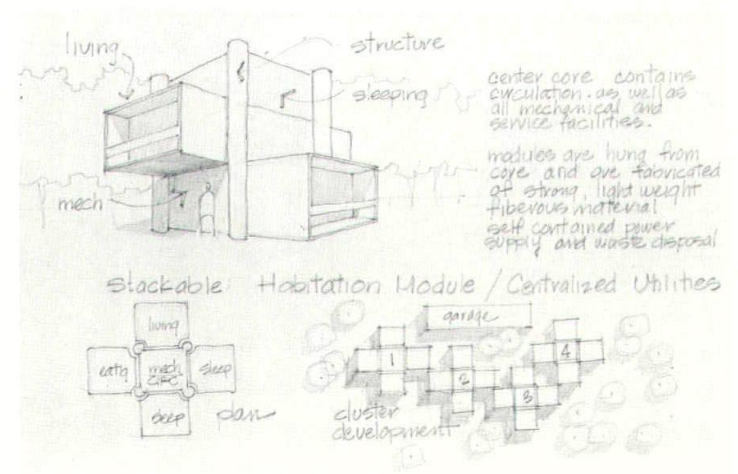 living
structure
sleeping
mech
center core contains
circulation. as well as
all mechanical and
service facilities.
modules are hung from
core and are fabricated
of strong, light weight
fiberous material
self contained power
supply and waste disposal
Stackable Habitation Module / Centralized Utilities
living
eatg
mech
CIRC
sleep
sleep
plan
garage
1
2
3
4
cluster
development